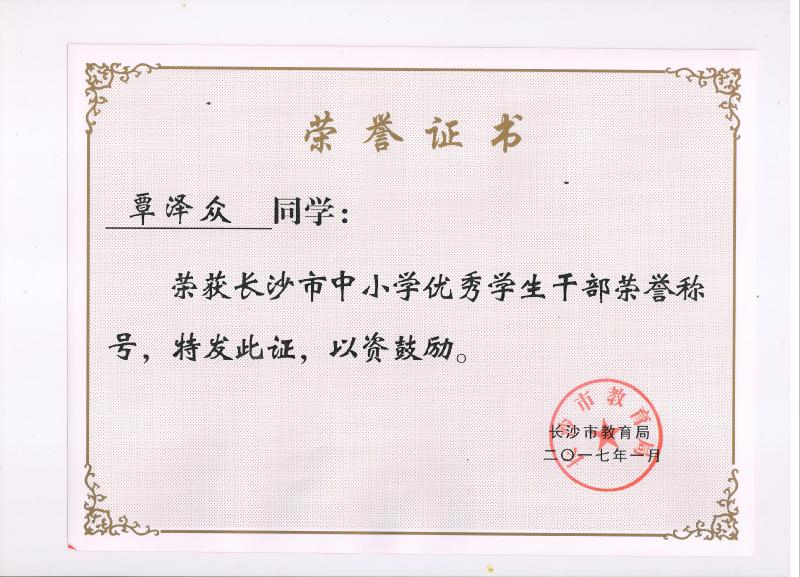 荣誉证书
覃泽众 同学：
荣获长沙市中小学优秀学生干部荣誉称
号，特发此证，以资鼓励。
长沙市教育局
二〇一七年一月
长沙市教育局